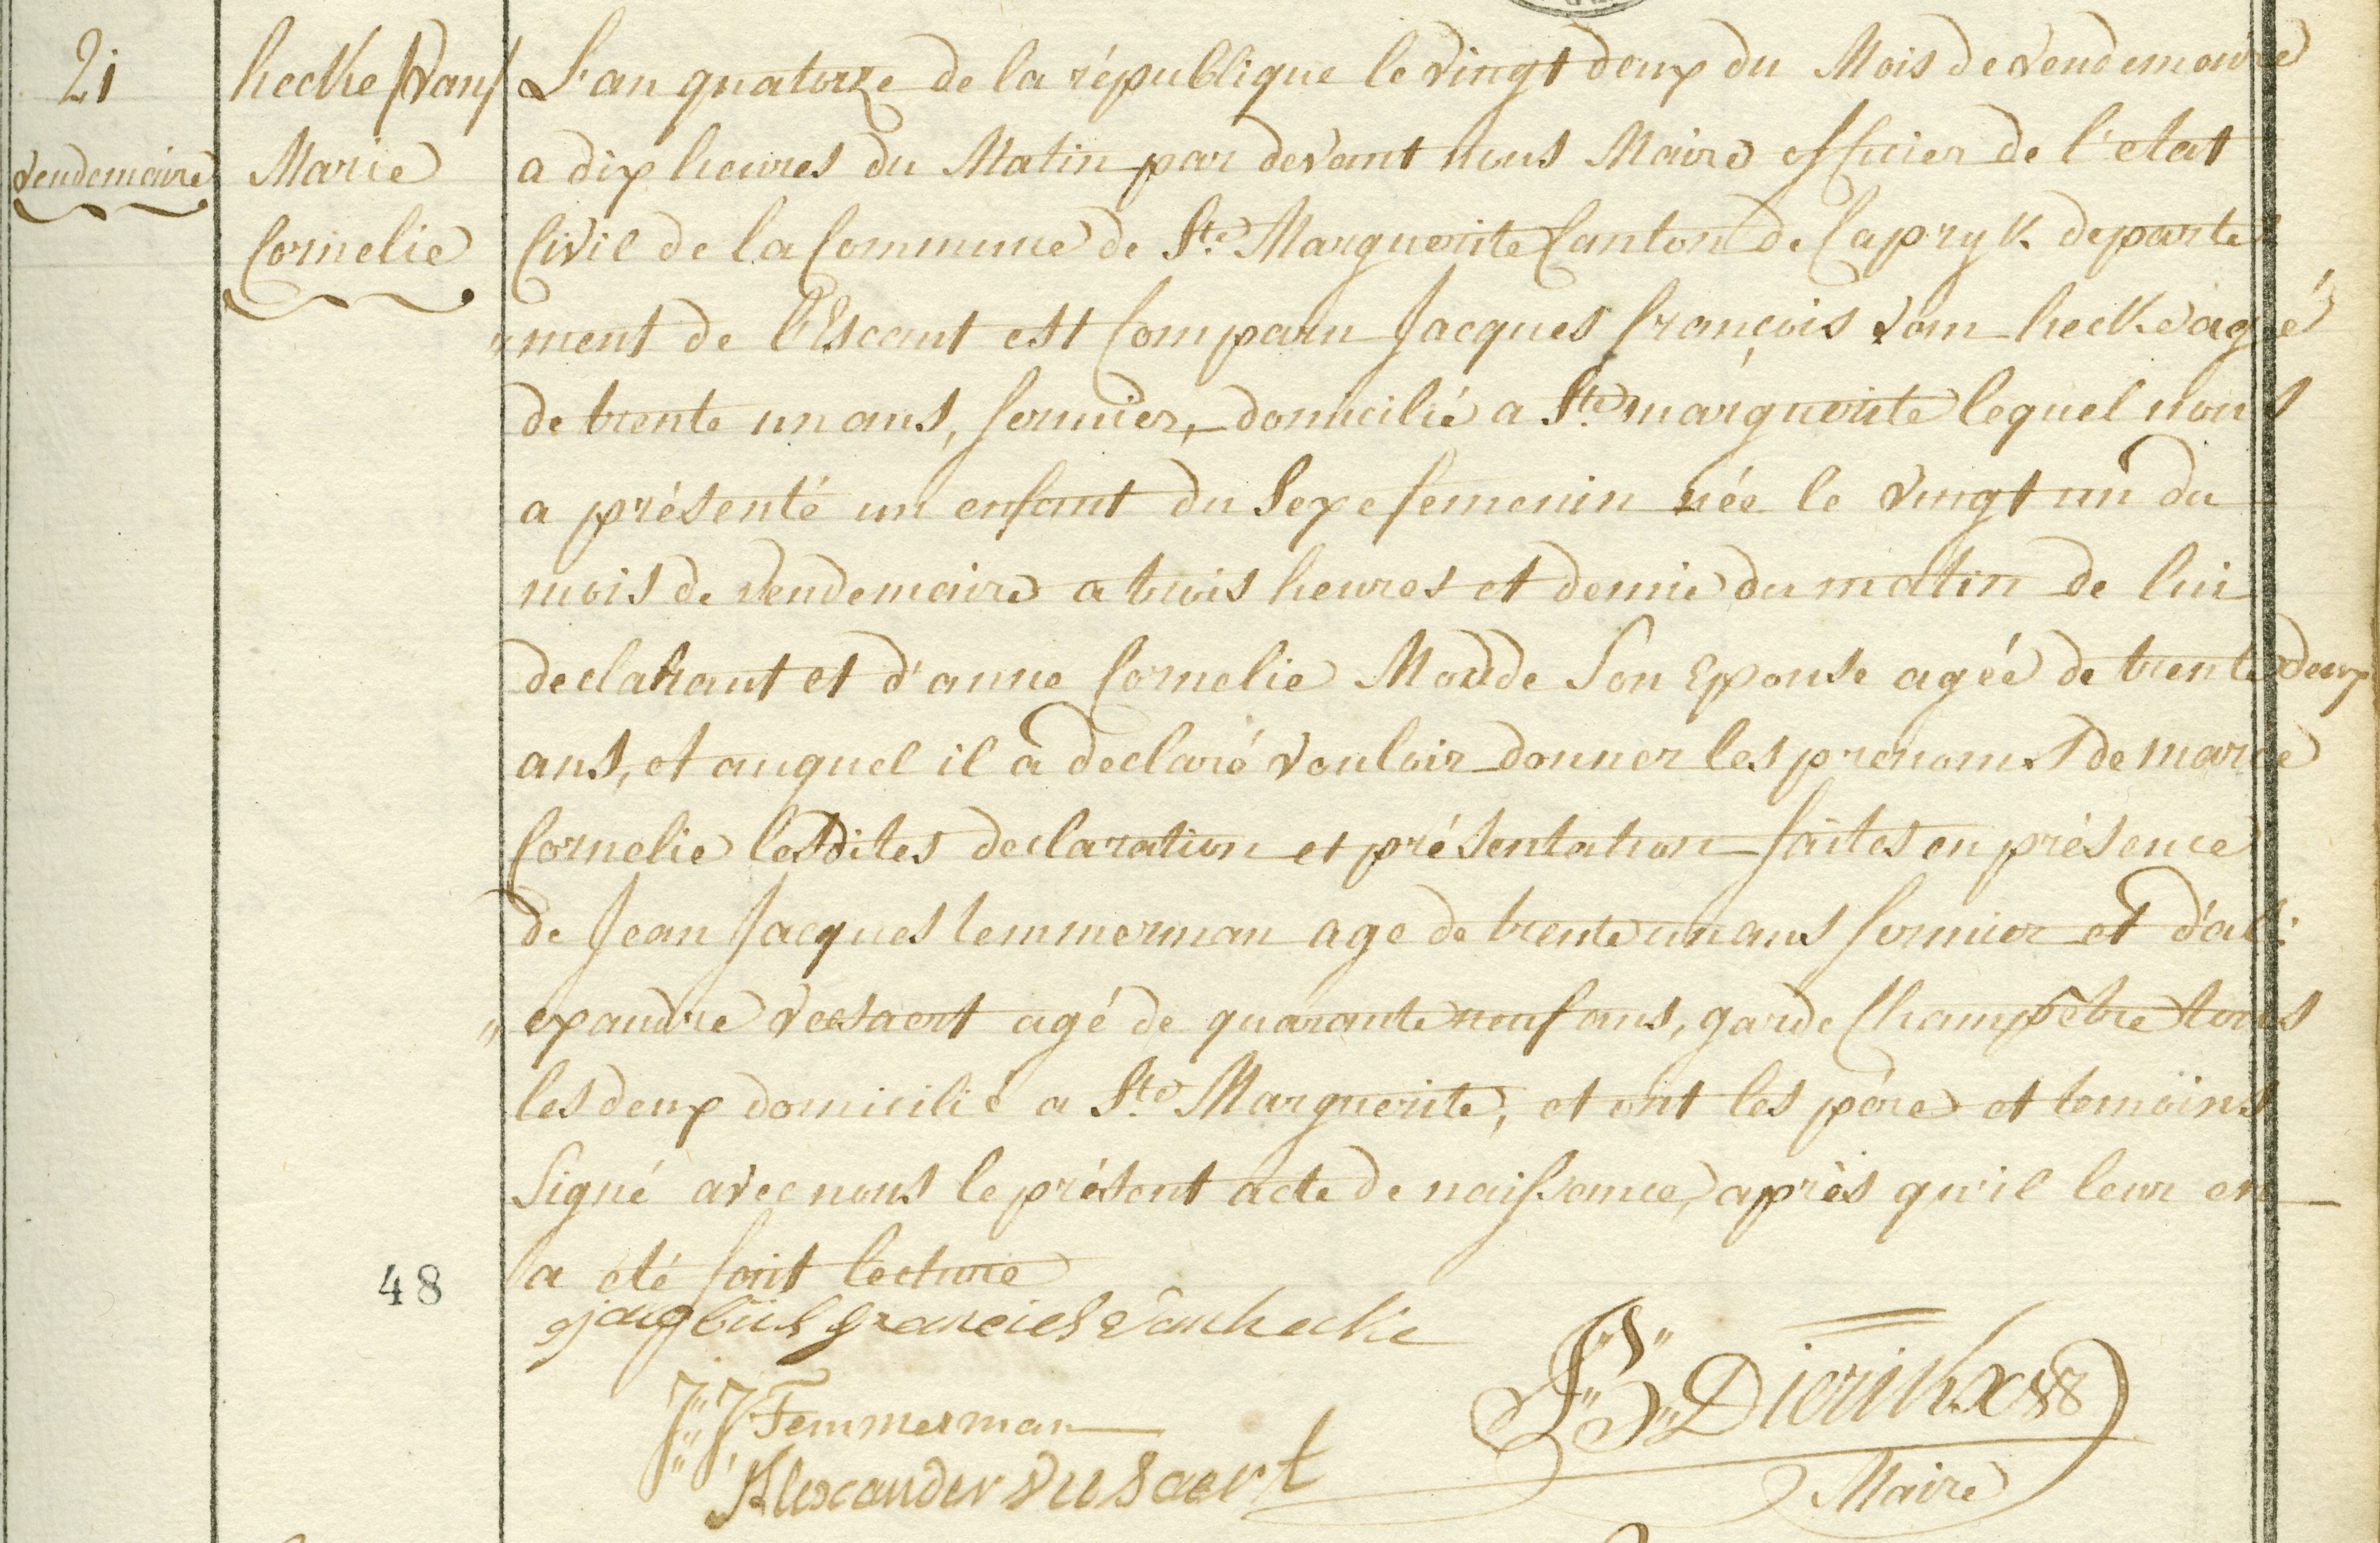 21
vendemaire
hecke (van)
Marie
Cornelie
L'an quatorze de la république le vingt deux du Mois de vendemaire
a dix heures du Matin par devant nous Maire officier de l'etat
Civil de la Commune de Ste. Marguerite Canton de Capryk departe
"ment de l'Escaut est Comparu Jacques françois van hecke agé
de trente un ans, fermier, domicilié a Ste. marguerite lequel nous
a présenté un enfant du Sexe femenin née le vingt un du
mois de vendemaire a trois heures et demie du matin de lui
declarant et d'anne Cornelie Madde Son Epouse agée de trente deux
ans, et auquel il a declaré vouloir donner les prenoms de marie
Cornelie lesdites declaration et présentation faites en présence
de Jean Jacques temmerman age de trente un ans fermier et d'al:
"exandre veesaert agé de quarante neuf ans, garde Champêtre tous
les deux domicilié a Ste. Marguerite, et ont les père et temoins
Signé avec nous le présent acte de naissance, après qu'il leur en
a eté fait lecture
48
francies Vanhecke
J"J" Temmerman
Alexander Vesaert
Dierikx
Maire